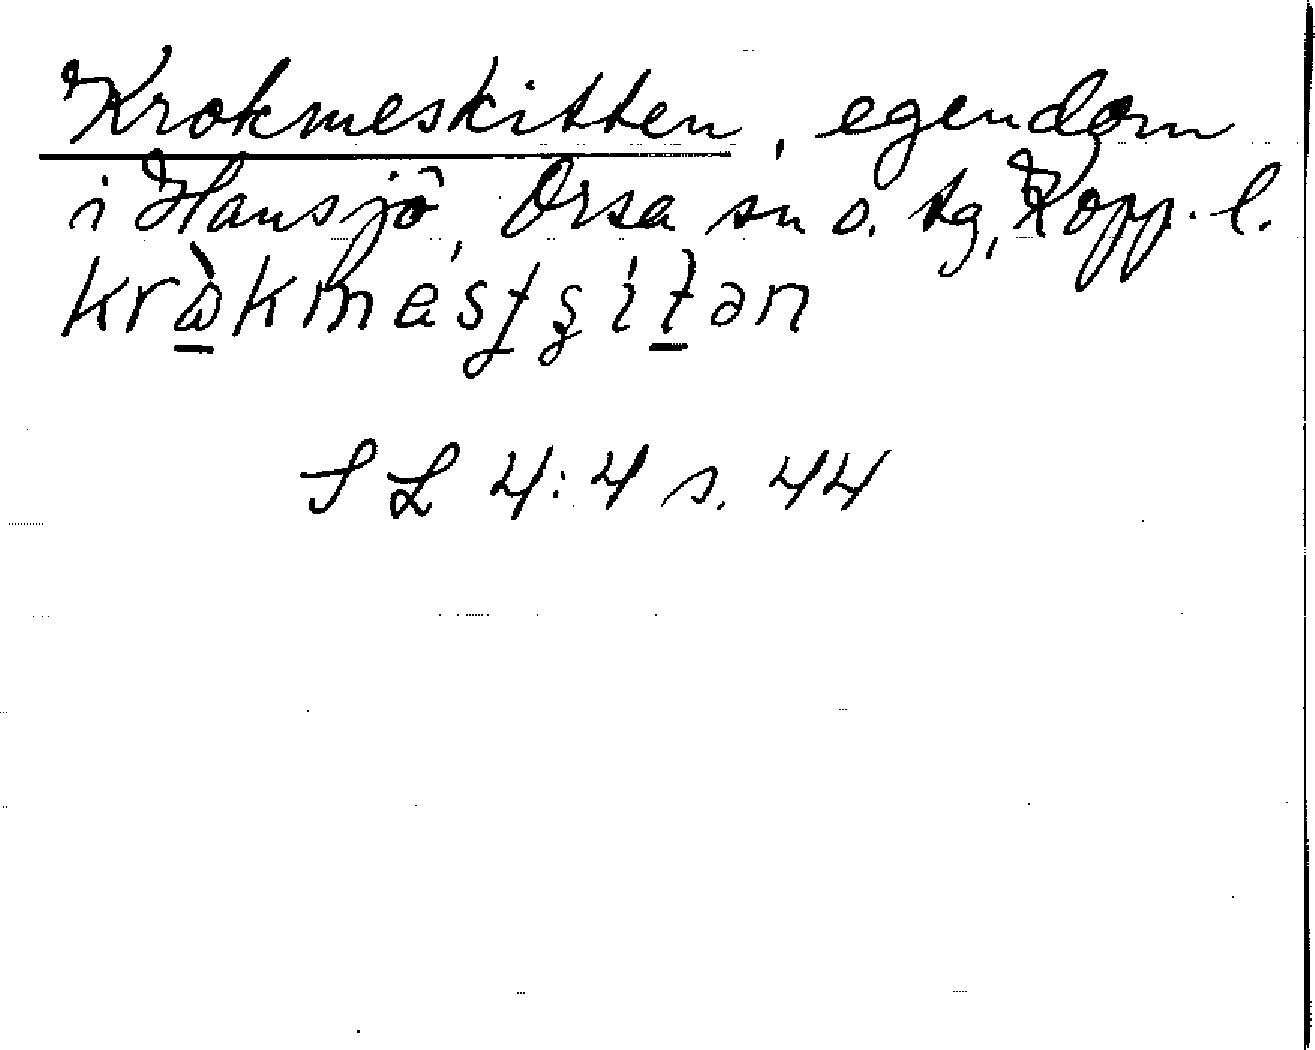 Krokmeskitten, egendom
i Hansjö, Orsa sn o. tg, Kopp. l.
SL 4:4 s. 44